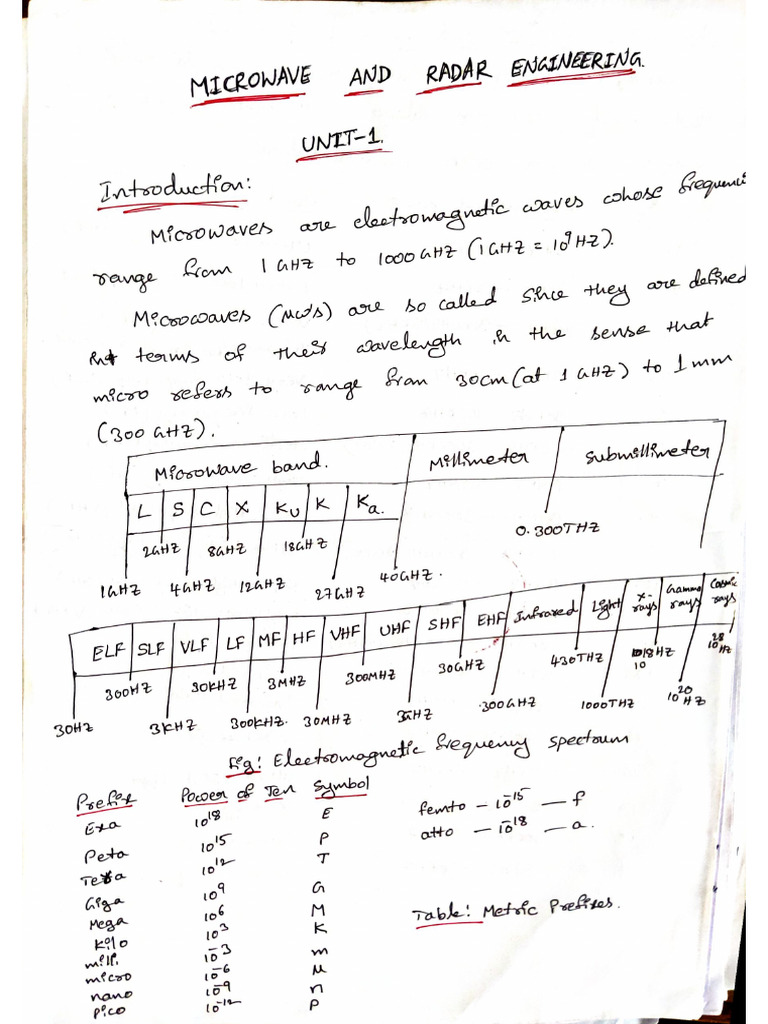 MICROWAVE AND RADAR ENGINEERING.
UNIT-1.
Introduction:
Microwaves are electromagnetic waves whose frequenci
range from 1 GHZ to 1000 GHZ (1 GHZ = 10⁹ HZ).
Microwaves (μw's) are so called since they are defined
in terms of their wavelength in the sense that
micro refers to range from 30cm (at 1 GHZ) to 1mm
(300 GHZ).
Microwave band. Millimeter Submillimeter
L S C X Ku K Ka.
2GHZ 8GHZ 18GHZ 0.300THZ
1GHZ 4GHZ 12GHZ 27GHZ 40GHZ.
ELF SLF VLF LF MF HF VHF UHF SHF EHF Infrared Light X-rays Gamma rays Cosmic rays
300HZ 30KHZ 3MHZ 300MHZ 30GHZ 430THZ 10¹⁸HZ 10²⁸HZ
30HZ 3KHZ 300KHZ. 30MHZ 3GHZ .300GHZ 1000THZ 10²⁰HZ
Fig: Electromagnetic frequency spectrum
Prefix Power of Ten Symbol
Exa 10¹⁸ E
Peta 10¹⁵ P
Tera 10¹² T
Giga 10⁹ G
Mega 10⁶ M
kilo 10³ K
milli 10⁻³ m
micro 10⁻⁶ μ
nano 10⁻⁹ n
pico 10⁻¹² P
femto — 10⁻¹⁵ — f
atto — 10⁻¹⁸ — a.
Table: Metric Prefixes.